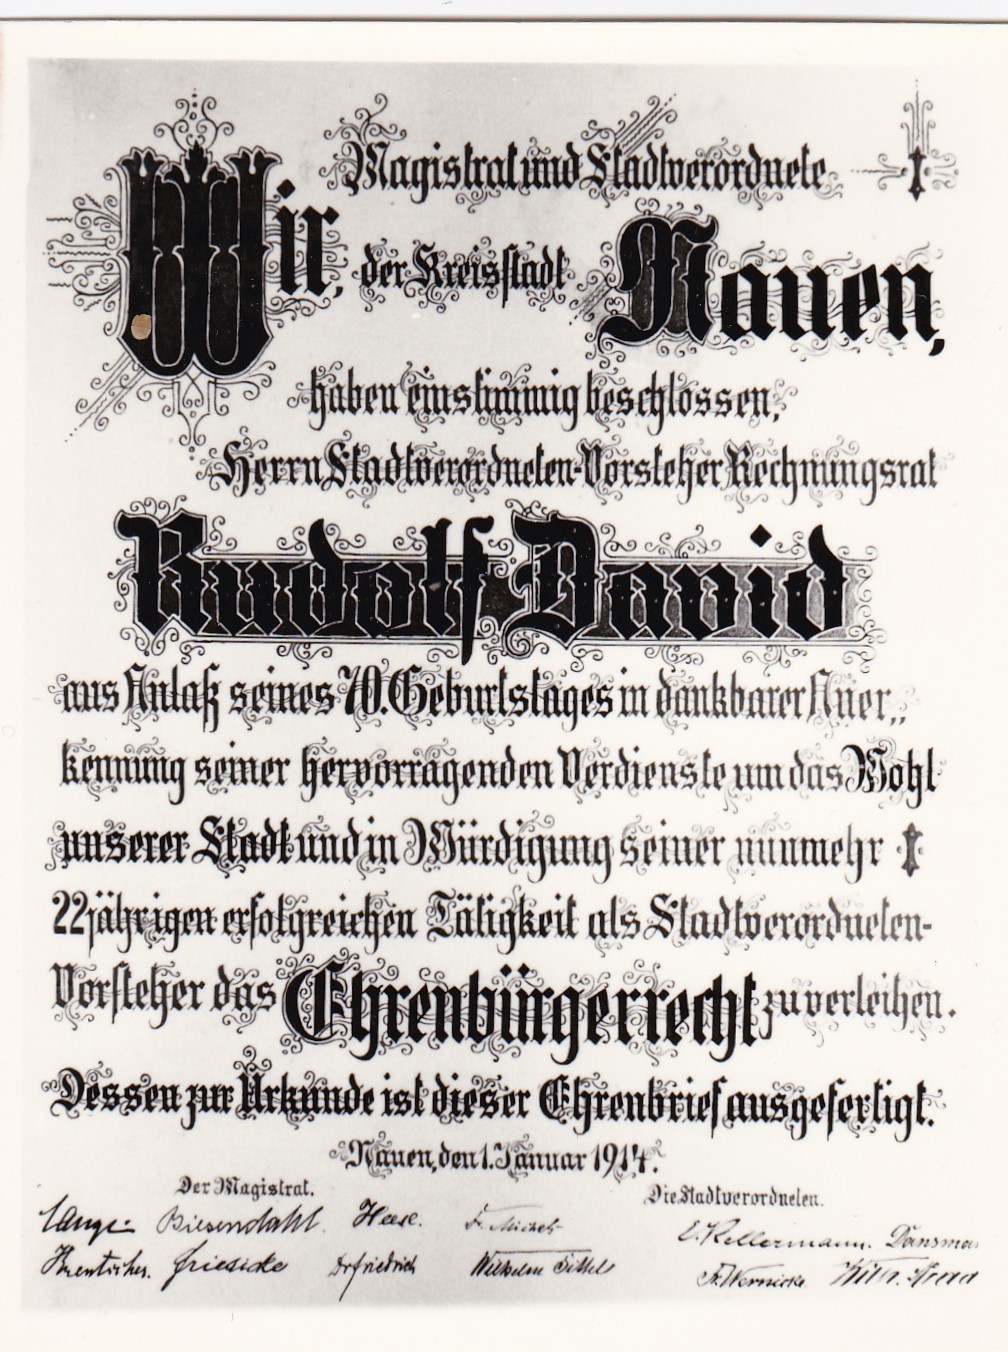 Magistrat und Stadtverordnete
Wir, der Kreisstadt Nauen,
haben einstimmig beschlossen,
Herrn Stadtverordneten-Vorsteher Rechnungsrat
Rudolf David
aus Anlaß seines 70. Geburtstages in dankbarer Aner„
kennung seiner hervorragenden Verdienste um das Wohl
unserer Stadt und in Würdigung seiner nunmehr
22jährigen erfolgreichen Tätigkeit als Stadtverordneten-
Vorsteher das Ehrenbürgerrecht zu verleihen.
Dessen zur Urkunde ist dieser Ehrenbrief ausgefertigt.
Nauen, den 1. Januar 1914.
Der Magistrat. Die Stadtverordneten.
Lange. Biesendahl. Heese. Fr. Michels E. Kellermann.
Friesicke Dr Friedrich Wilhelm Fr. Wernicke.